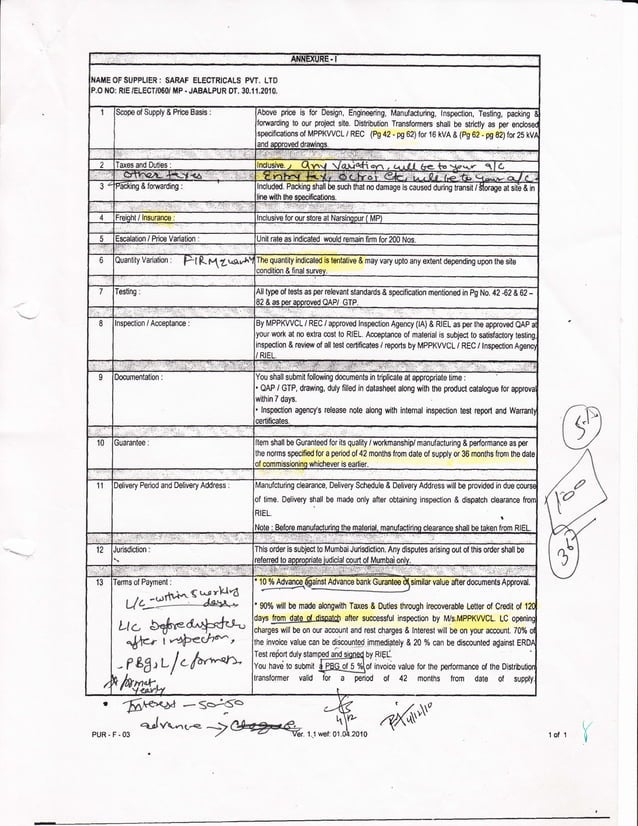 ANNEXURE - I
NAME OF SUPPLIER : SARAF ELECTRICALS PVT. LTD
P.O NO: RIE /ELECT/060/ MP - JABALPUR DT. 30.11.2010.
1 Scope of Supply & Price Basis : Above price is for Design, Engineering, Manufacturing, Inspection, Testing, packing &
forwarding to our project site. Distribution Transformers shall be strictly as per enclosed
specifications of MPPKVVCL / REC (Pg 42 - pg 62) for 16 kVA & (Pg 62 - pg 82) for 25 kVA
and approved drawings.
2 Taxes and Duties : Inclusive, any Variation, will be to your a/c
other taxes Entry tax, Octroi etc, will be to your a/c.
3 Packing & forwarding : Included. Packing shall be such that no damage is caused during transit / storage at site & in
line with the specifications.
4 Freight / Insurance : Inclusive for our store at Narsingpur ( MP)
5 Escalation / Price Variation : Unit rate as indicated would remain firm for 200 Nos.
6 Quantity Variation : FIRM The quantity indicated is tentative & may vary upto any extent depending upon the site
condition & final survey.
7 Testing : All type of tests as per relevant standards & specification mentioned in Pg No. 42 -62 & 62 –
82 & as per approved QAP/ GTP.
8 Inspection / Acceptance : By MPPKVVCL / REC / approved Inspection Agency (IA) & RIEL as per the approved QAP at
your work at no extra cost to RIEL. Acceptance of material is subject to satisfactory testing,
inspection & review of all test certificates / reports by MPPKVVCL / REC / Inspection Agency
/ RIEL.
9 Documentation : You shall submit following documents in triplicate at appropriate time :
• QAP / GTP, drawing, duly filled in datasheet along with the product catalogue for approval
within 7 days.
• Inspection agency's release note along with internal inspection test report and Warranty
certificates.
10 Guarantee : Item shall be Guranteed for its quality / workmanship/ manufacturing & performance as per
the norms specified for a period of 42 months from date of supply or 36 months from the date
of commissioning whichever is earlier.
11 Delivery Period and Delivery Address : Manufcturing clearance, Delivery Schedule & Delivery Address will be provided in due course
of time. Delivery shall be made only after obtaining inspection & dispatch clearance from
RIEL.
Note : Before manufacturing the material, manufactiring clearance shall be taken from RIEL.
12 Jurisdiction : This order is subject to Mumbai Jurisdiction. Any disputes arising out of this order shall be
referred to appropriate judicial court of Mumbai only.
13 Terms of Payment : * 10 % Advance against Advance bank Gurantee of similar value after documents Approval.
L/c - within 5 working
days
* 90% will be made alongwith Taxes & Duties through Irrecoverable Letter of Credit of 120
days from date of dispatch after successful inspection by M/s.MPPKVVCL. LC opening
charges will be on our account and rest charges & Interest will be on your account. 70% of
the invoice value can be discounted immediately & 20 % can be discounted against ERDA
Test report duly stamped and signed by RIEL.
You have to submit a PBG of 5 % of invoice value for the performance of the Distribution
transformer valid for a period of 42 months from date of supply.
L/C before dispatch
after Inspection,
- PBG, L/c formats.
format
• Interest - 50-50
advance →
4/12
4/12/10
5%
100
365
PUR - F - 03 Ver. 1.1 wef: 01.04.2010 1 of 1
8